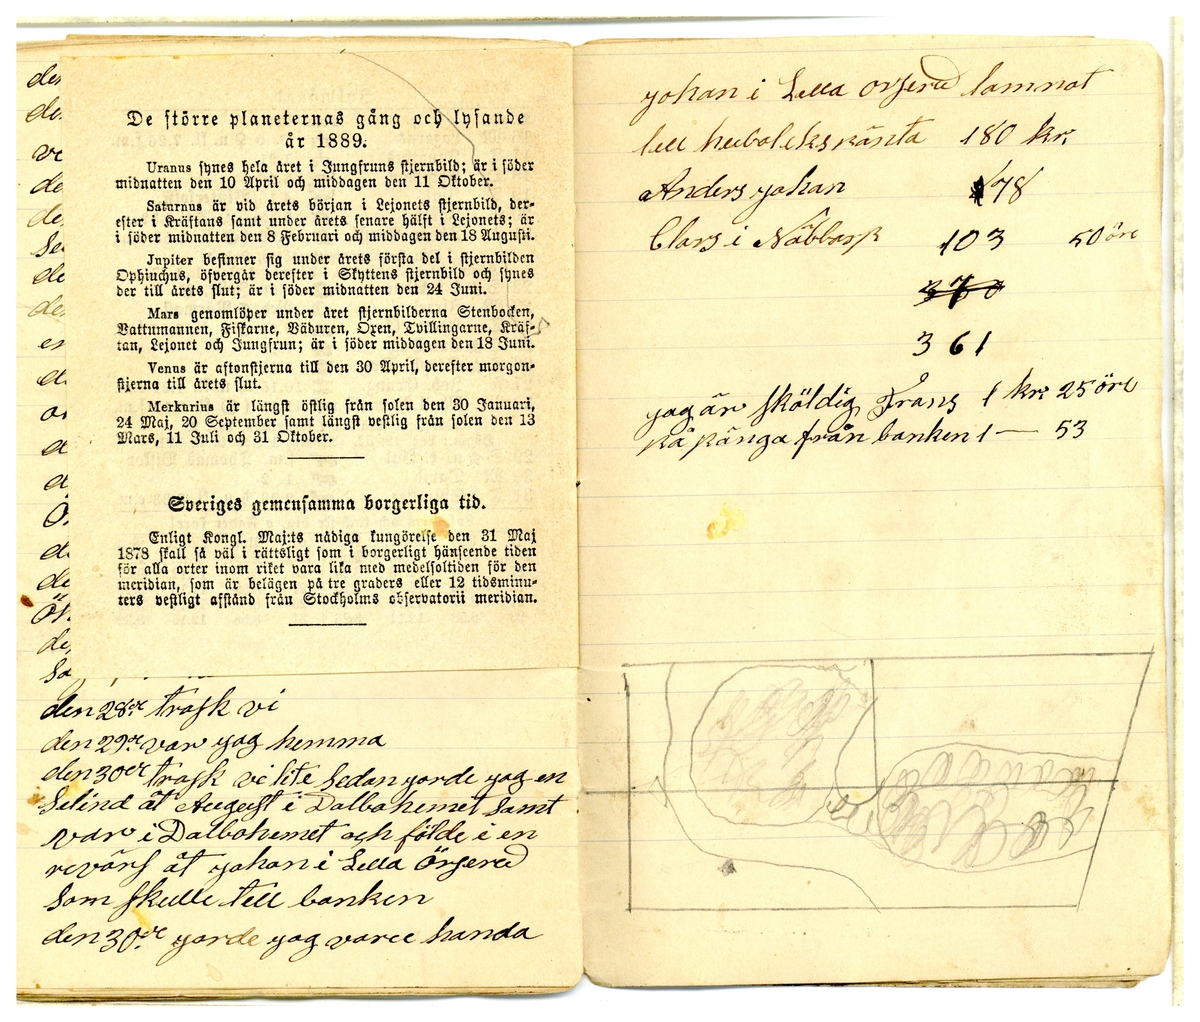 De större planeternas gång och lysande
år 1889.
Uranus synes hela året i Jungfruns stjernbild; är i söder
midnatten den 10 April och middagen den 11 Oktober.
Saturnus är vid årets början i Lejonets stjernbild, der-
efter i Kräftans samt under årets senare hälft i Lejonets; är
i söder midnatten den 8 Februari och middagen den 18 Augusti.
Jupiter befinner sig under årets första del i stjernbilden
Ophiuchus, öfvergår derefter i Skyttens stjernbild och synes
der till årets slut; är i söder midnatten den 24 Juni.
Mars genomlöper under året stjernbilderna Stenbocken,
Vattumannen, Fiskarne, Väduren, Oxen, Tvillingarne, Kräf-
tan, Lejonet och Jungfrun; är i söder middagen den 18 Juni.
Venus är aftonstjerna till den 30 April, derefter morgon-
stjerna till årets slut.
Merkurius är längst östlig från solen den 30 Januari,
24 Maj, 20 September samt längst vestlig från solen den 13
Mars, 11 Juli och 31 Oktober.
Sveriges gemensamma borgerliga tid.
Enligt Kongl. Maj:ts nådiga kungörelse den 31 Maj
1878 skall så väl i rättsligt som i borgerligt hänseende tiden
för alla orter inom riket vara lika med medelsoltiden för den
meridian, som är belägen på tre graders eller 12 tidsminu-
ters vestligt afstånd från Stockholms observatorii meridian.
den 28de trask vi
den 29de var jag hemma
den 30de trask vi lite sedan jorde jag en
selind åt August i Dalbohemet samt
var i Dalbohemet och földe i en
revärs åt johan i Lella Örsered
som skulle till banken
den 30de jorde jag varee handa
johan i Lella Orsered lamnat
180 kr.
Anders johan 178
Clars i 103 50 öre
370
361
jag är sköldig Frans 1 kr: 25 öre
på pänga från banken 1 — 53